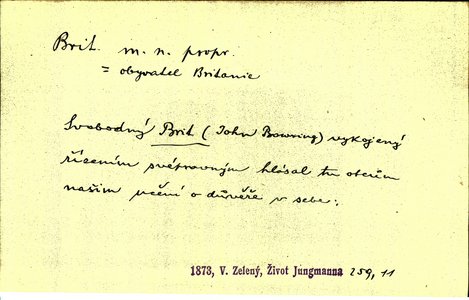 Brit. m. n. propr.
= obyvatel Britanie
Svobodný Brit (John Bowring) vykojený
řízením světravným hlásal tu otcům
našim učení o důvěře v sebe.
1873, V. Zelený, Život Jungmanna 259, 11